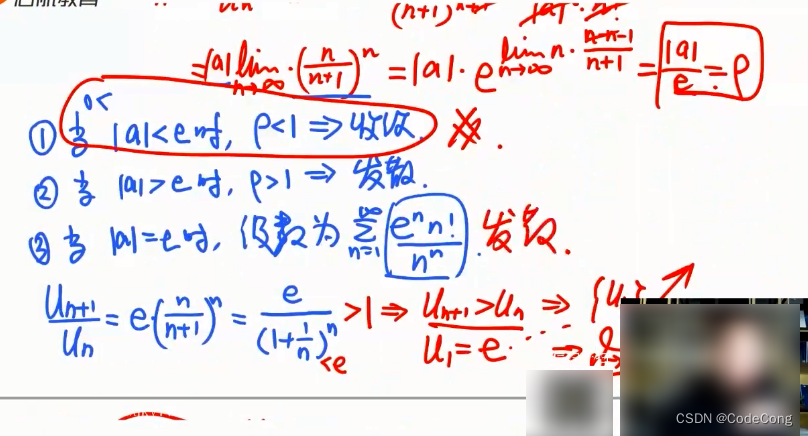 启航教育
(n+1)ⁿ⁺¹ |a|ⁿ·n!
=|a| lim_{n→∞}·(n/(n+1))ⁿ =|a|·e^{lim_{n→∞} n·(n-n-1)/(n+1)} = |a|/e = ρ
① 当 0<|a|<e时, ρ<1 ⇒ 收敛.
② 当 |a|>e时, ρ>1 ⇒ 发散.
③ 当 |a|=e时, 级数为 ∑_{n=1}^{∞} eⁿn!/nⁿ. 发散.
U_{n+1}/U_n = e·(n/(n+1))ⁿ = e/(1+1/n)ⁿ >1 ⇒ U_{n+1}>U_n ⇒ {U
<e U₁=e ⇒
CSDN @CodeCong